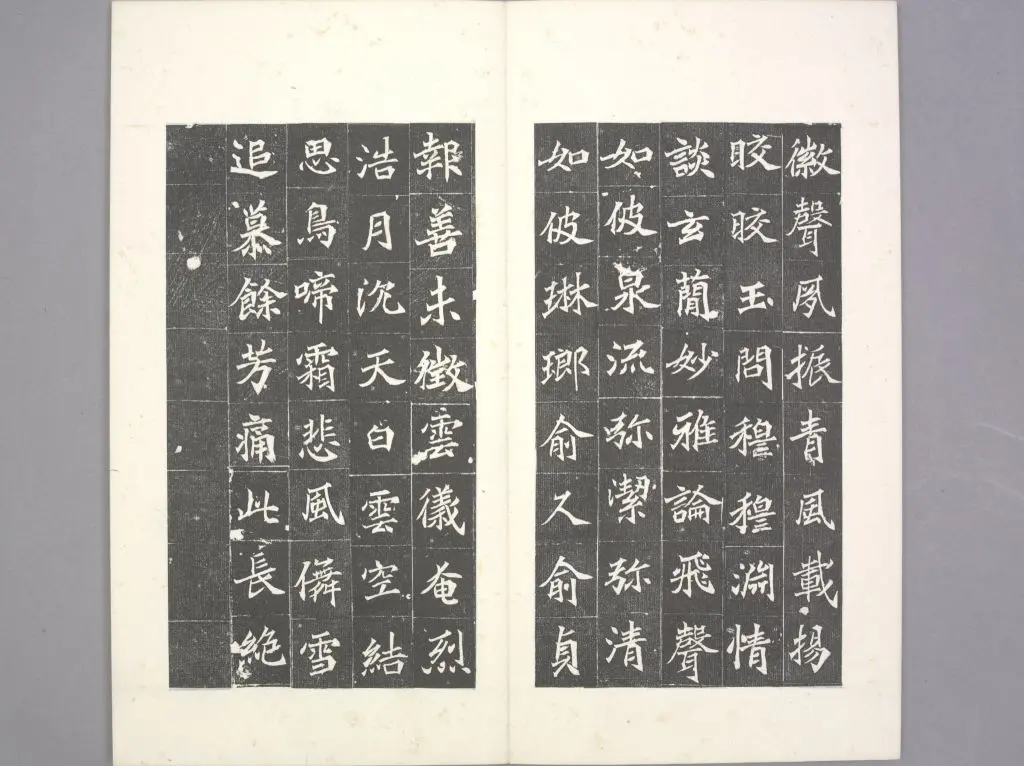 徽聲夙振青風載揚
晈晈玉問穆穆淵情
談玄蕳妙雅論飛聲
如彼泉流弥潔弥清
如彼琳瑯俞久俞貞
報善未徵雲儀奄烈
浩月沉天白雲空結
思鳥啼霜悲風儛雪
追慕餘芳痛此長絶